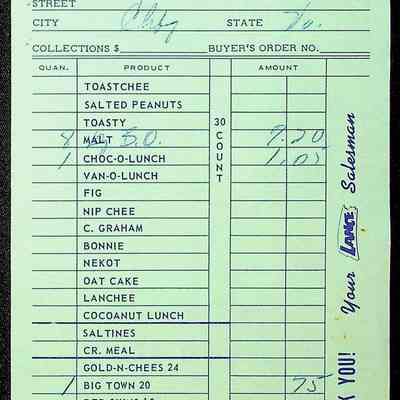 STREET
CITY STATE Va.
COLLECTIONS $ BUYER'S ORDER NO.
QUAN. PRODUCT AMOUNT
TOASTCHEE
SALTED PEANUTS
TOASTY
8 MALT B.O. 7.20
1 CHOC-O-LUNCH 1.05
VAN-O-LUNCH
FIG
NIP CHEE
C. GRAHAM
BONNIE
NEKOT
OAT CAKE
LANCHEE
COCOANUT LUNCH
SALTINES
CR. MEAL
GOLD-N-CHEES 24
1 BIG TOWN 20 75
30 COUNT
YOU! Your LANCE Salesman